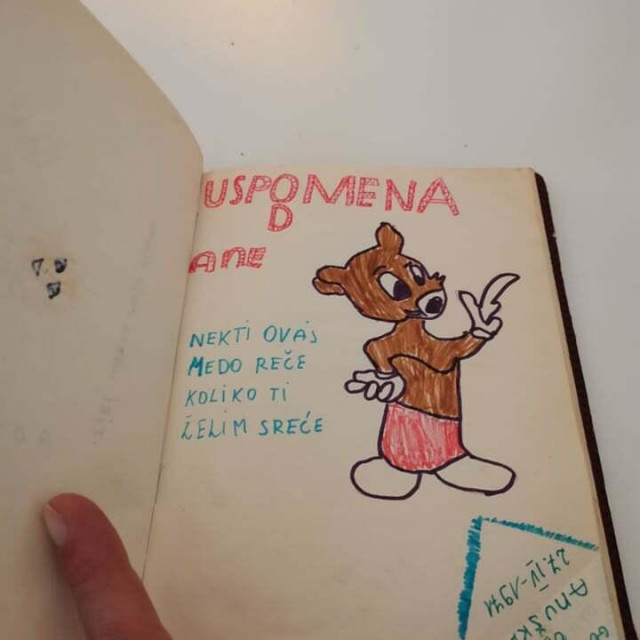 USPOMENA
OD
ANE
NEKTI OVAJ
MEDO REČE
KOLIKO TI
ŽELIM SREĆE
27.IV-1971